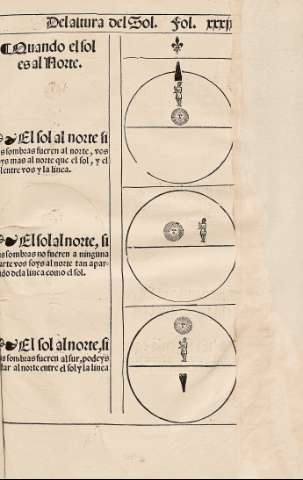 Del altura del Sol. Fol. xxxij
Quando el sol
es al Norte.
El sol al norte si
as sombras fueren al norte, vos
eys mas al norte que el sol, y el
l entre vos y la linea.
El sol al norte, si
as sombras no fueren a ninguna
arte vos soys al norte tan apar-
ido de la linea como el sol.
El sol al norte, si
as sombras fueren al sur, podeys
dar al norte entre el sol y la linea